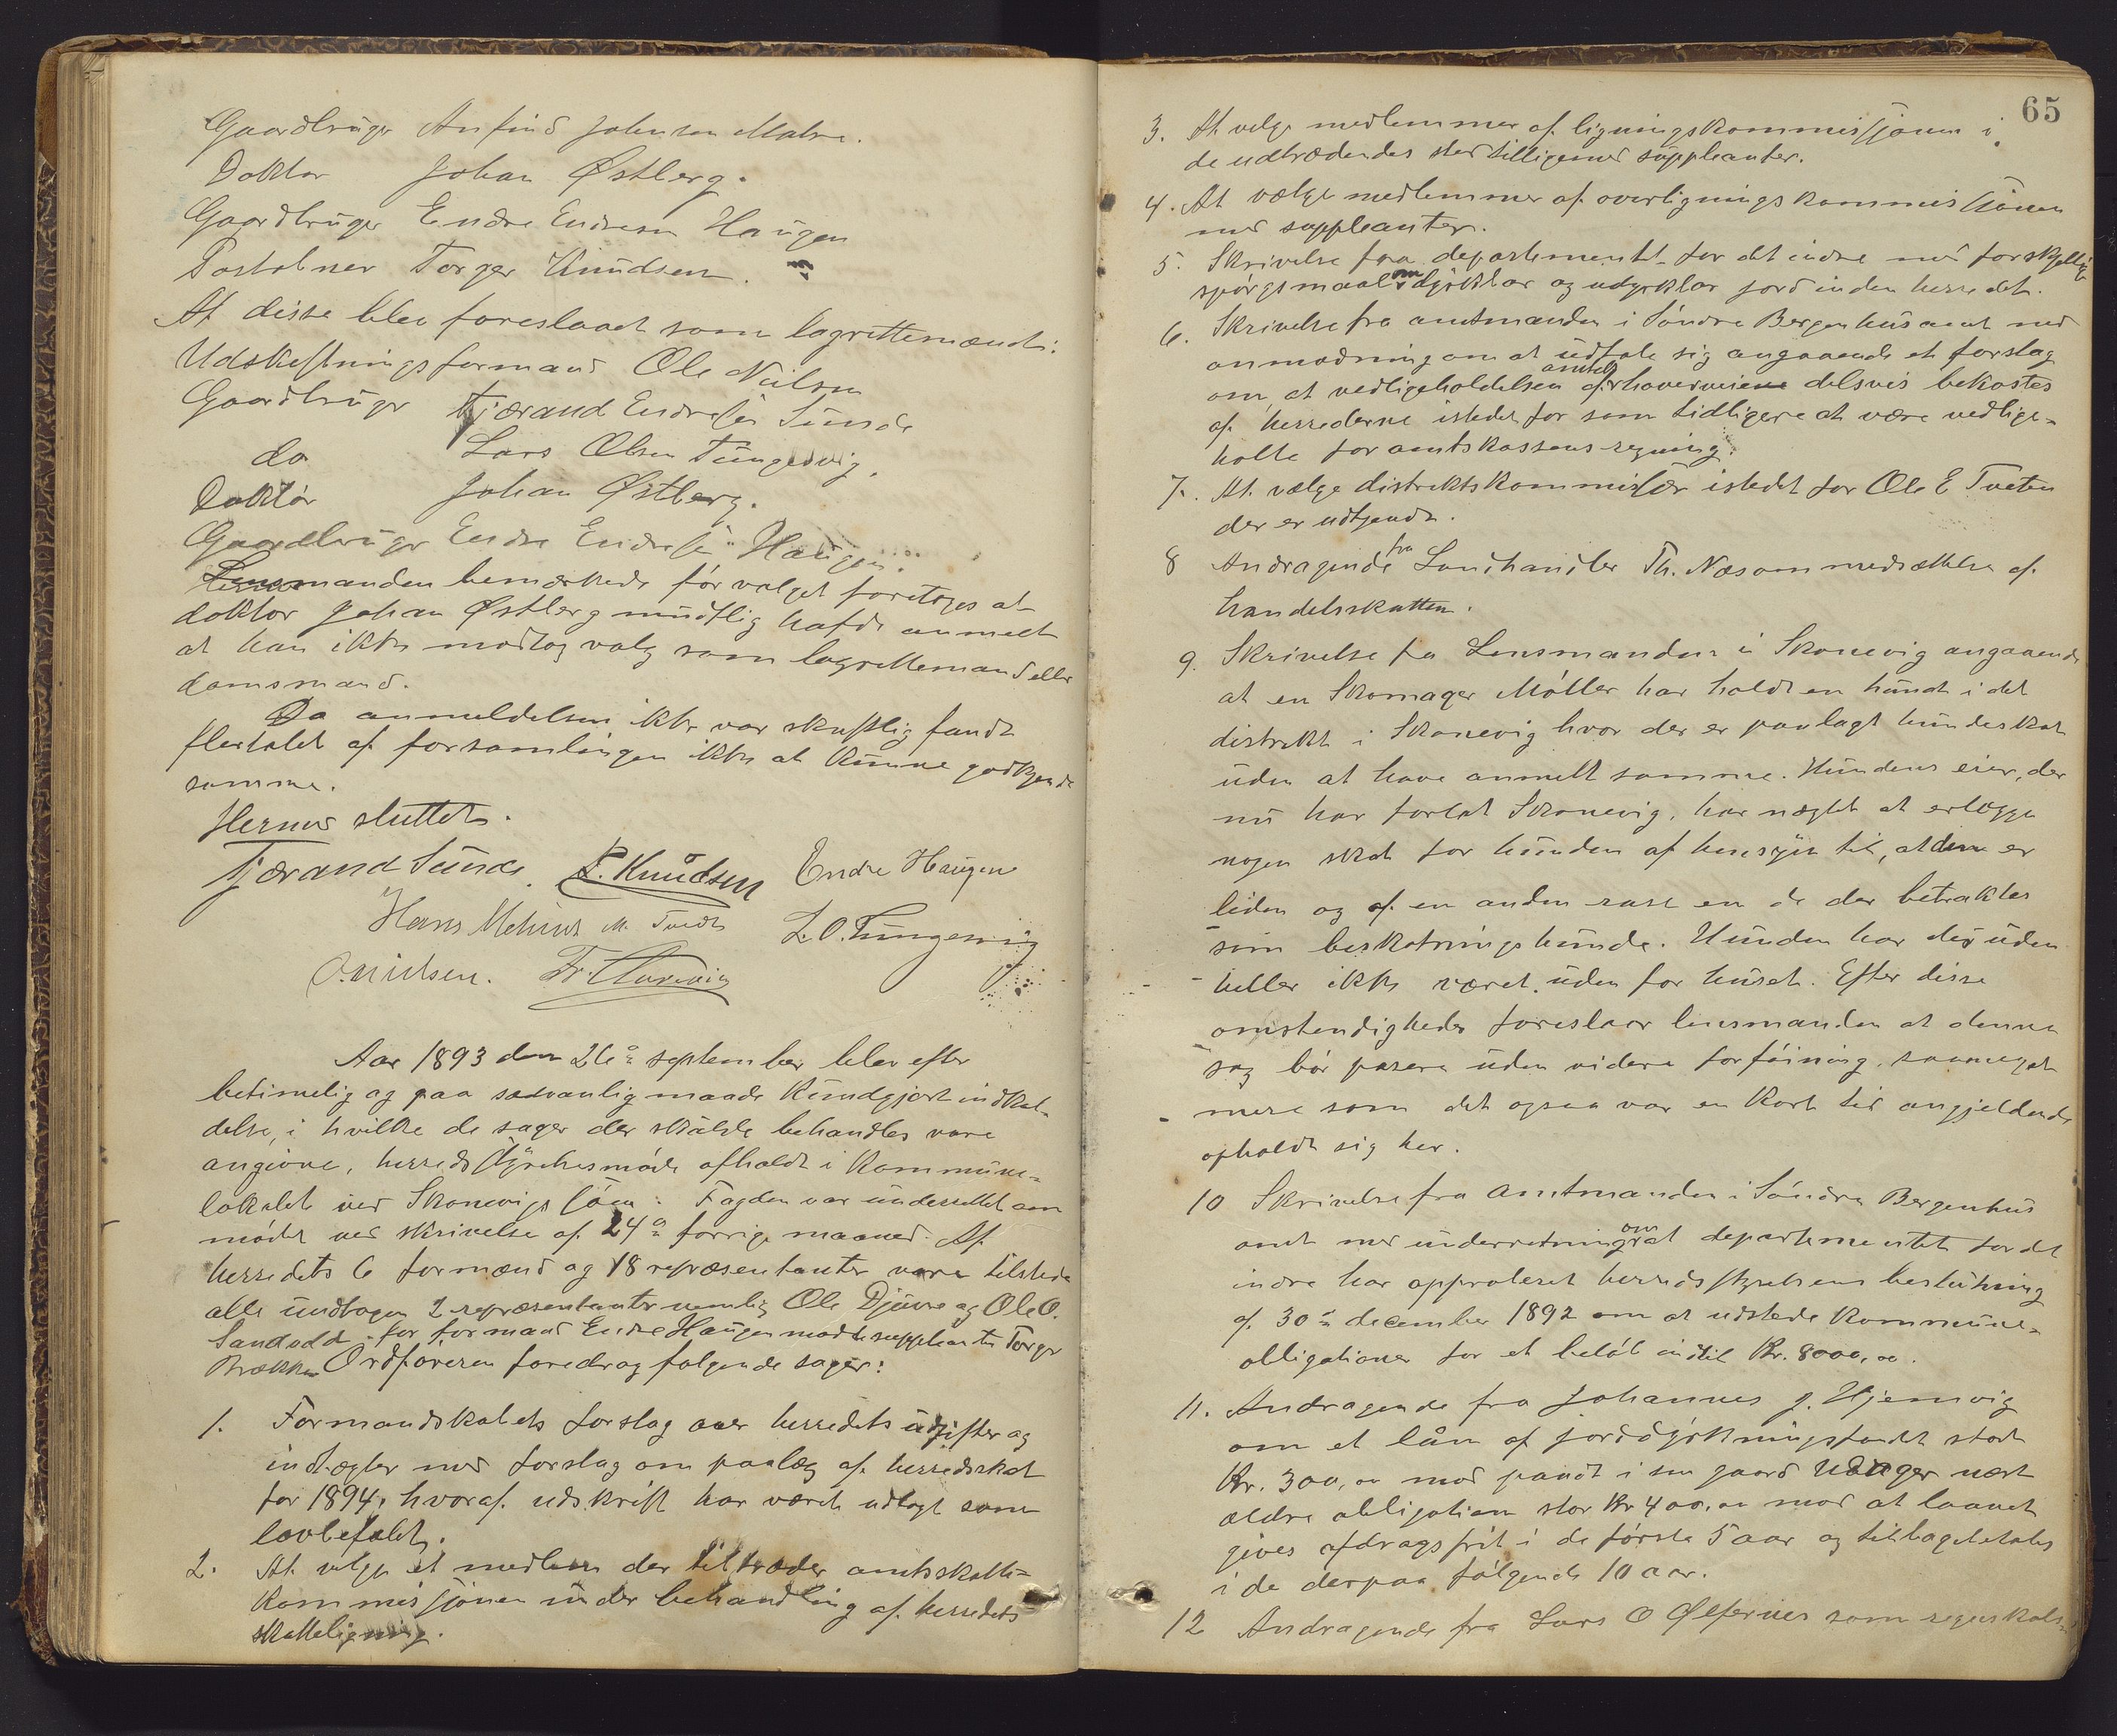 Gaardbruger Anfind Johnson Matre.
Doktor Johan Østberg.
Gaardbruger Endre Endresen Haugen
Postabner Torger Knudsen.
Af disse blev foreslaaet som lagrettemænd:
Udskiftningsformand Ole Nilsen
Gaardbruger Tjærand Endresen Sunde
do Lars Olsen Tungesvig.
Doktor Johan Østberg.
Gaardbruger Endre Endresen Haugen.
Lensmanden bemærkede før valget foretoges at
doktor Johan Østberg mundtlig hafde anmelt
at han ikke modtog valg som lagrettemand eller
domsmand.
Da anmeldelsen ikke var skriftlig fandt
flertalet af forsamlingen ikke at kunne godkjende
samme.
Hermed sluttet.
Tjærand Sunde. T. Knudsen Endre Haugen
Hans M. Tvedt L. O. Tungesvig
O. Nielsen.
Aar 1893 den 26de september blev efter
betimelig og paa sedvanlig maade kundgjort indkal-
delse, i hvilke de sager der skulde behandles vare
angivne, herredsstyrelsesmøde afholdt i kommune-
lokalet ved Skonevigs søen. Fogden var underrettet om
mødet ved skrivelse af 24de forrige maaned. Af
herredets 6 formænd og 18 repræsentanter vare tilstede
alle undtagen 2 repræsentanter nemlig Ole Djuve og Ole O.
Sandvold. for formand Endre Haugen mødte suppleanten Torger
Brække. Ordføreren foredrog følgende sager:
1. Formandskabets forslag over herredets udgifter og
indtægter med forslag om paalæg af herredsskat
for 1894, hvoraf udskrift har været udlagt som
lovbefalet.
2. At velge et medlem der tiltræder amtsskatte-
kommissjonen under behandling af herredets
skatteligning.
65
3. At velge medlemmer af ligningskommissjonen i
de udtrædendes sted tilligemed suppleanter.
4. At vælge medlemmer af overligningskommissjonen
med suppleanter.
5. Skrivelse fra departementet for det indre med forskjellige
spørgsmaal om dyrkbar og udyrkbar jord inden herredet.
6. Skrivelse fra amtmanden i Søndre Bergenhus amt med
anmodning om at udtale sig angaaende et forslag
om, at vedligeholdelsen af amtets hovedveiene delsvis bekostes
af herrederne istedet for som tidligere at være vedlige-
holte for amtskassens regning.
7. At vælge distriktskommissær istedet for Ole E Tveten
der er udtjendt.
8 Andragende fra Landhandler Th. Næs om nedsættelse af
handelsskatten.
9. Skrivelse fra Lensmanden i Skonevig angaaende
at en Skomager Møller har holdt en hund i det
distrikt i Skonevig hvor der er paalagt hundeskat
uden at have anmelt samme. Hundens eier, der
nu har forlat Skonevig, har negtet at erlægge
nogen skat for hunden af hensyn til, at den er
liden og af en anden rase en de der betraktes
som beskatningshunde. Hunden har desuden
heller ikke været uden for huset. Efter disse
omstendigheder foreslaar lensmanden at denne
sag bør passere uden videre forføining, saameget
mere som det ogsaa var en kort tid angjeldende
opholdt sig her.
10 Skrivelse fra amtmanden i Søndre Bergenhus
amt med underretning om at departementet for det
indre har approberet herredsstyrelsens beslutning
af 30te december 1892 om at udstede kommune-
obligationer for et beløb indtil Kr. 8000,00.
11. Andragende fra Johannes J. Hjemvig
om et lån af jorddyrkningsfondet stort
Kr. 300,00 mod pandt i sin gaard nest
ældre obligation stor Kr 400,00 mod at laanet
gives afdragsfrit i de første 5 aar og tilbagebetales
i de derpaa følgende 10 aar.
12 Andragende fra Lars O Ølfernes som regnskabs-